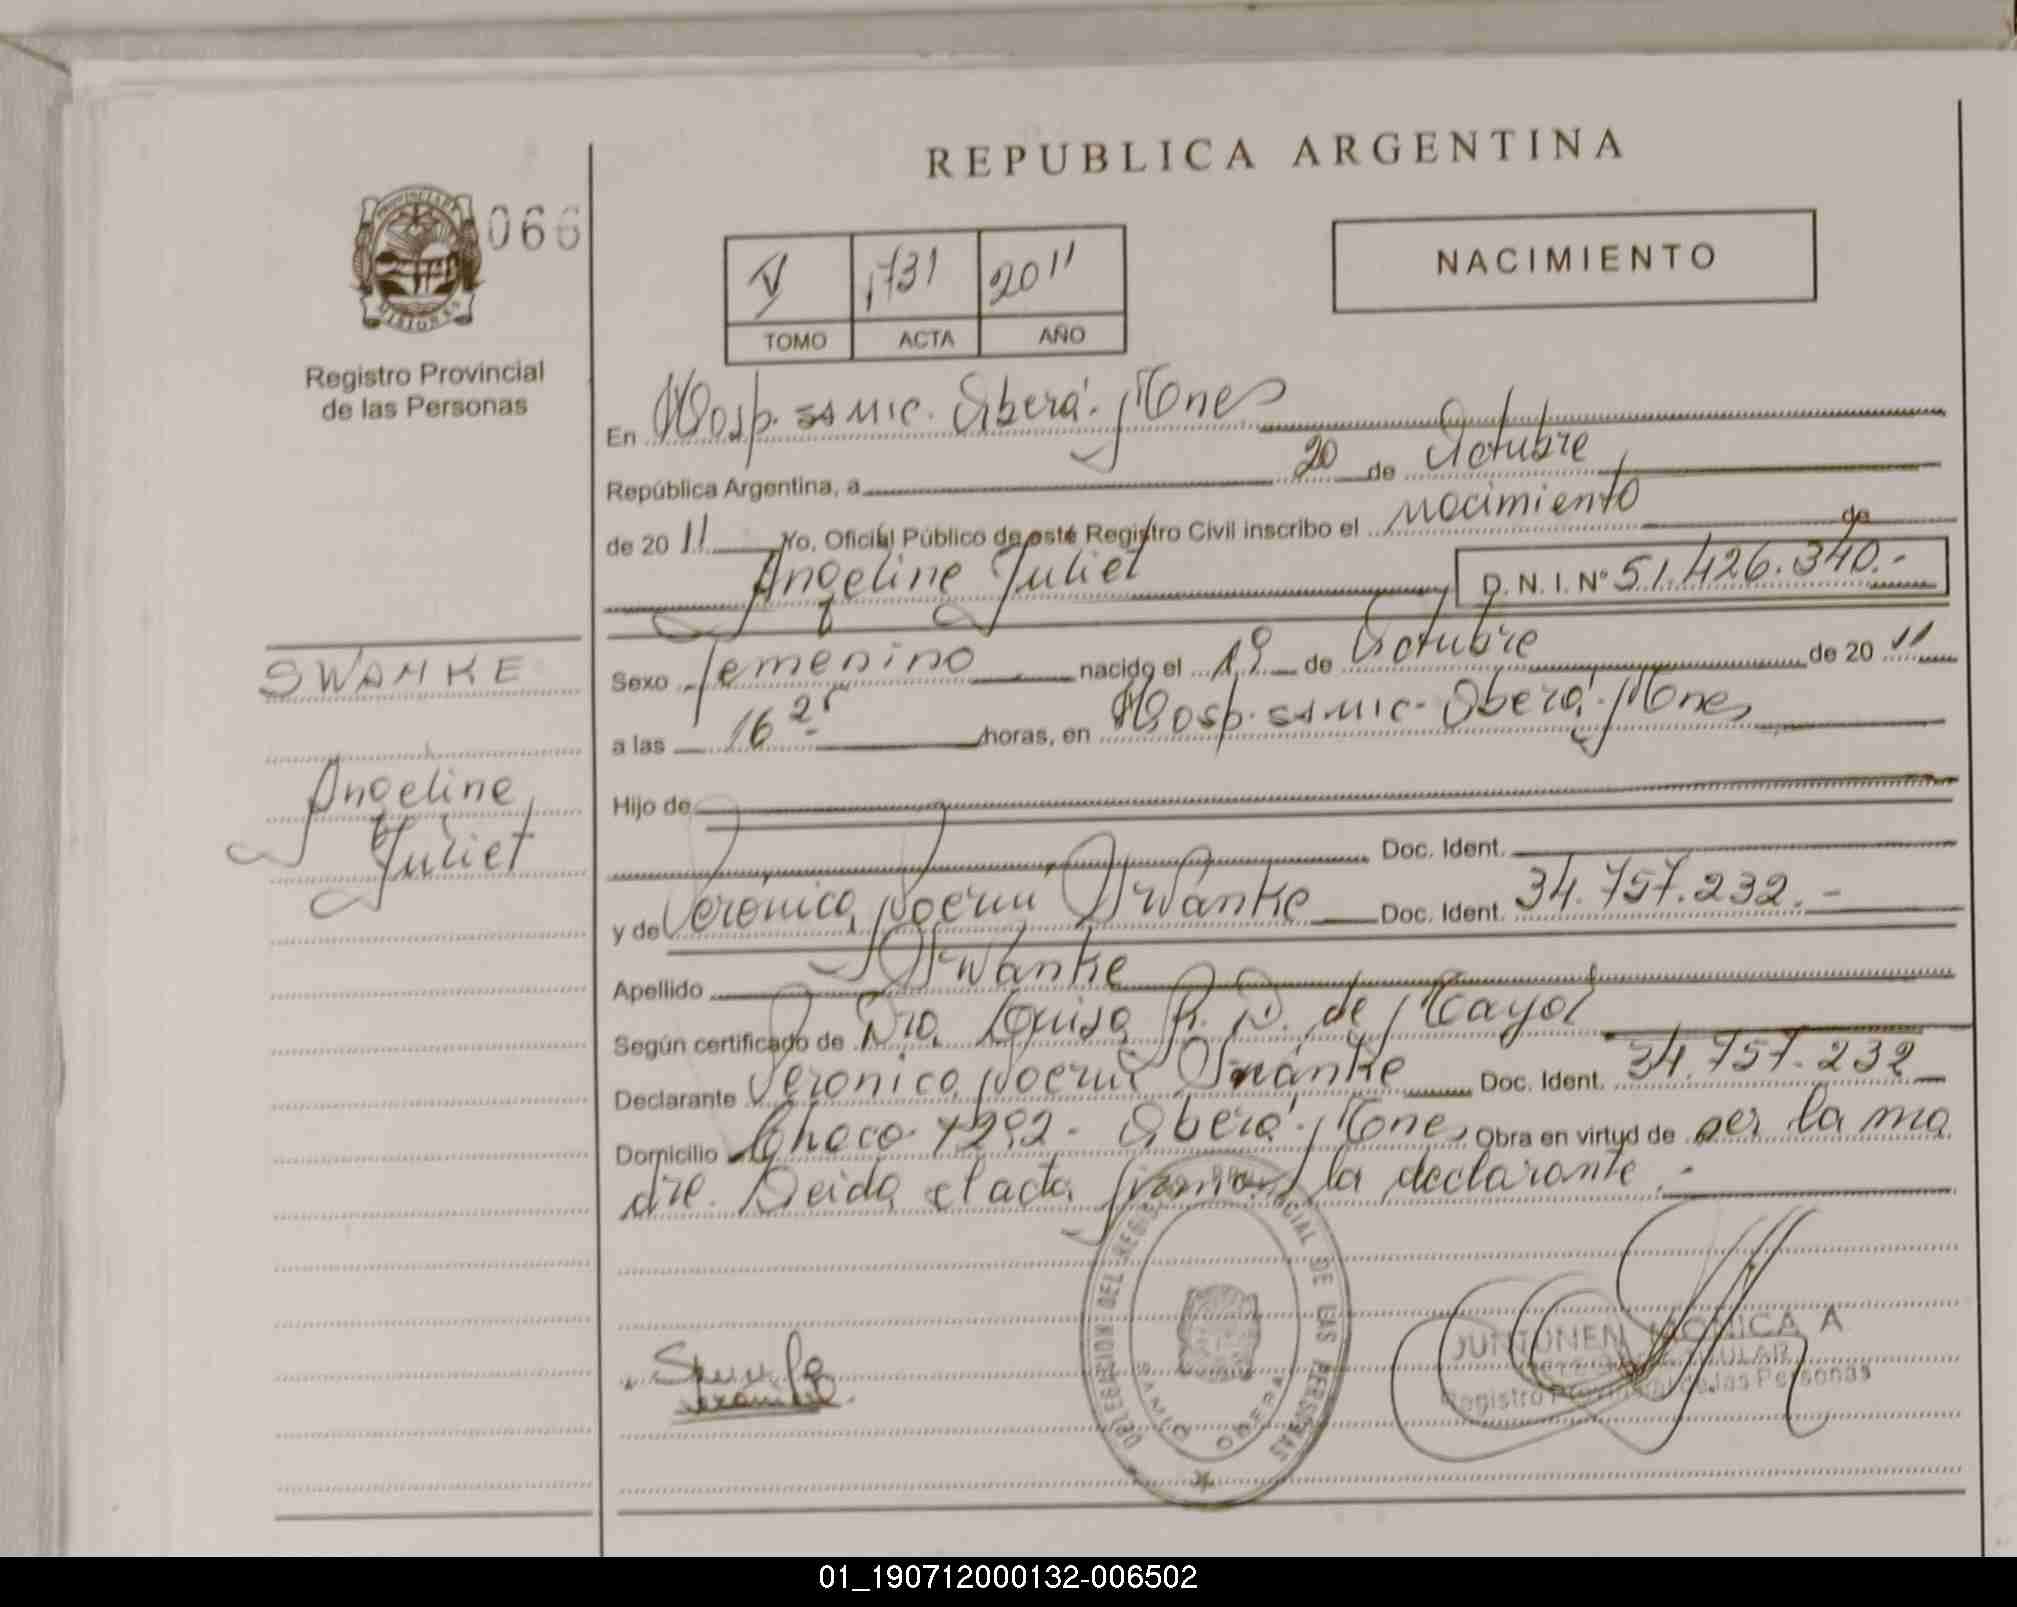 REPUBLICA ARGENTINA
PROVINCIA DE MISIONES
066
Registro Provincial
de las Personas
V 1731 2011
TOMO ACTA AÑO
NACIMIENTO
En Hosp. SAMIC. Oberá. Mones
República Argentina, a 20 de Octubre
de 2011 Yo, Oficial Público de este Registro Civil inscribo el Nacimiento de
Angeline Juliet D. N. I. Nº 51.426.340.-
SWANKE
Angeline
Juliet
Sexo femenino nacido el 19 de Octubre de 2011
a las 16 25 horas, en Hosp. SAMIC. Oberá. Mones
Hijo de
Doc. Ident.
y de Verónica Noemi Swanke Doc. Ident. 34.757.232.-
Apellido Swanke
Según certificado de Dra. Luisa R. D. de Mayol
Declarante Veronica Noemi Swanke Doc. Ident. 34.757.232
Domicilio Chaco 1292 - Oberá. Mones Obra en virtud de ser la ma
dre. Leida el acta firma la declarante.-
DELEGACION DEL REGISTRO PROVINCIAL DE LAS PERSONAS
OBERA
JUNTUNEN MONICA A
TITULAR
Registro Provincial de las Personas
01_190712000132-006502